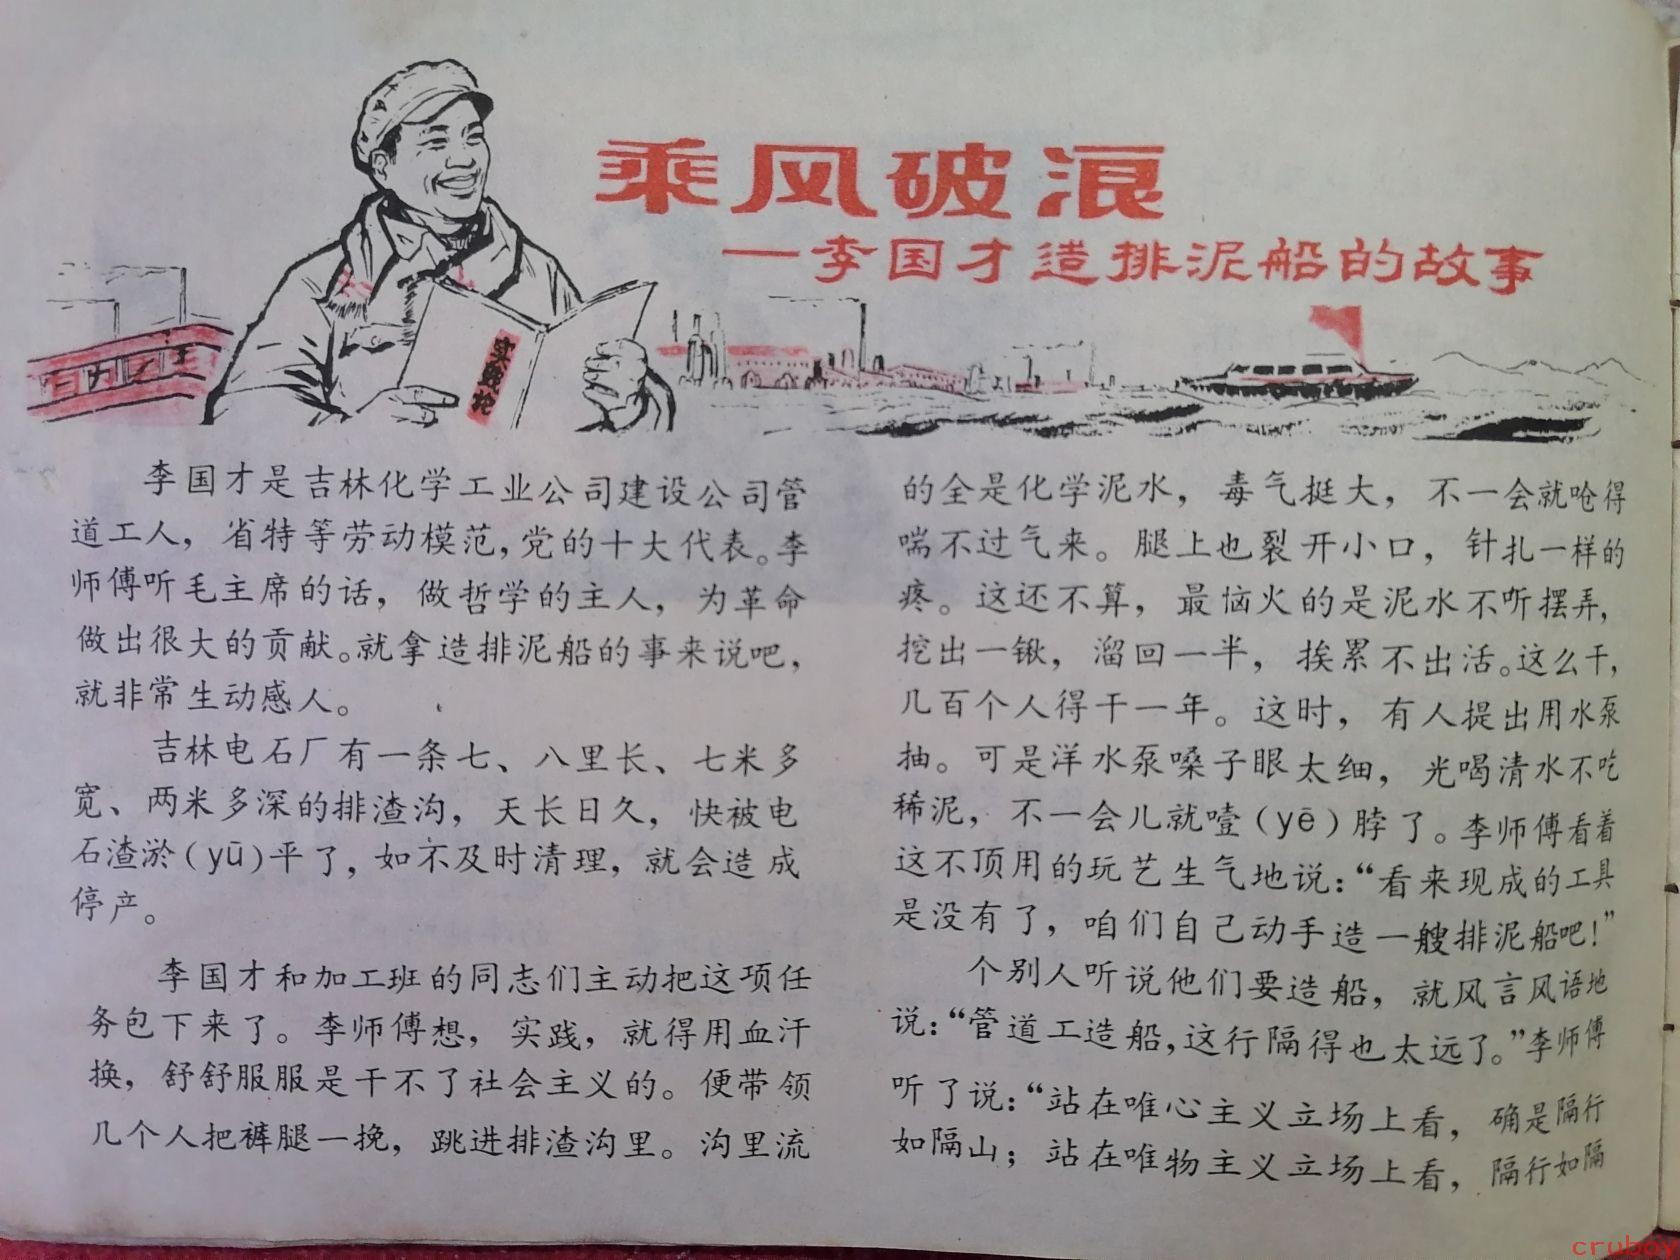 乘风破浪
—李国才造排泥船的故事
实践论
李国才是吉林化学工业公司建设公司管
道工人，省特等劳动模范，党的十大代表。李
师傅听毛主席的话，做哲学的主人，为革命
做出很大的贡献。就拿造排泥船的事来说吧，
就非常生动感人。
吉林电石厂有一条七、八里长、七米多
宽、两米多深的排渣沟，天长日久，快被电
石渣淤(yū)平了，如不及时清理，就会造成
停产。
李国才和加工班的同志们主动把这项任
务包下来了。李师傅想，实践，就得用血汗
换，舒舒服服是干不了社会主义的。便带领
几个人把裤腿一挽，跳进排渣沟里。沟里流
的全是化学泥水，毒气挺大，不一会就呛得
喘不过气来。腿上也裂开小口，针扎一样的
疼。这还不算，最恼火的是泥水不听摆弄，
挖出一锹，溜回一半，挨累不出活。这么干，
几百个人得干一年。这时，有人提出用水泵
抽。可是洋水泵嗓子眼太细，光喝清水不吃
稀泥，不一会儿就噎(yē)脖了。李师傅看着
这不顶用的玩艺生气地说：“看来现成的工具
是没有了，咱们自己动手造一艘排泥船吧！”
个别人听说他们要造船，就风言风语地
说：“管道工造船，这行隔得也太远了。”李师傅
听了说：“站在唯心主义立场上看，确是隔行
如隔山；站在唯物主义立场上看，隔行如隔
cruboy